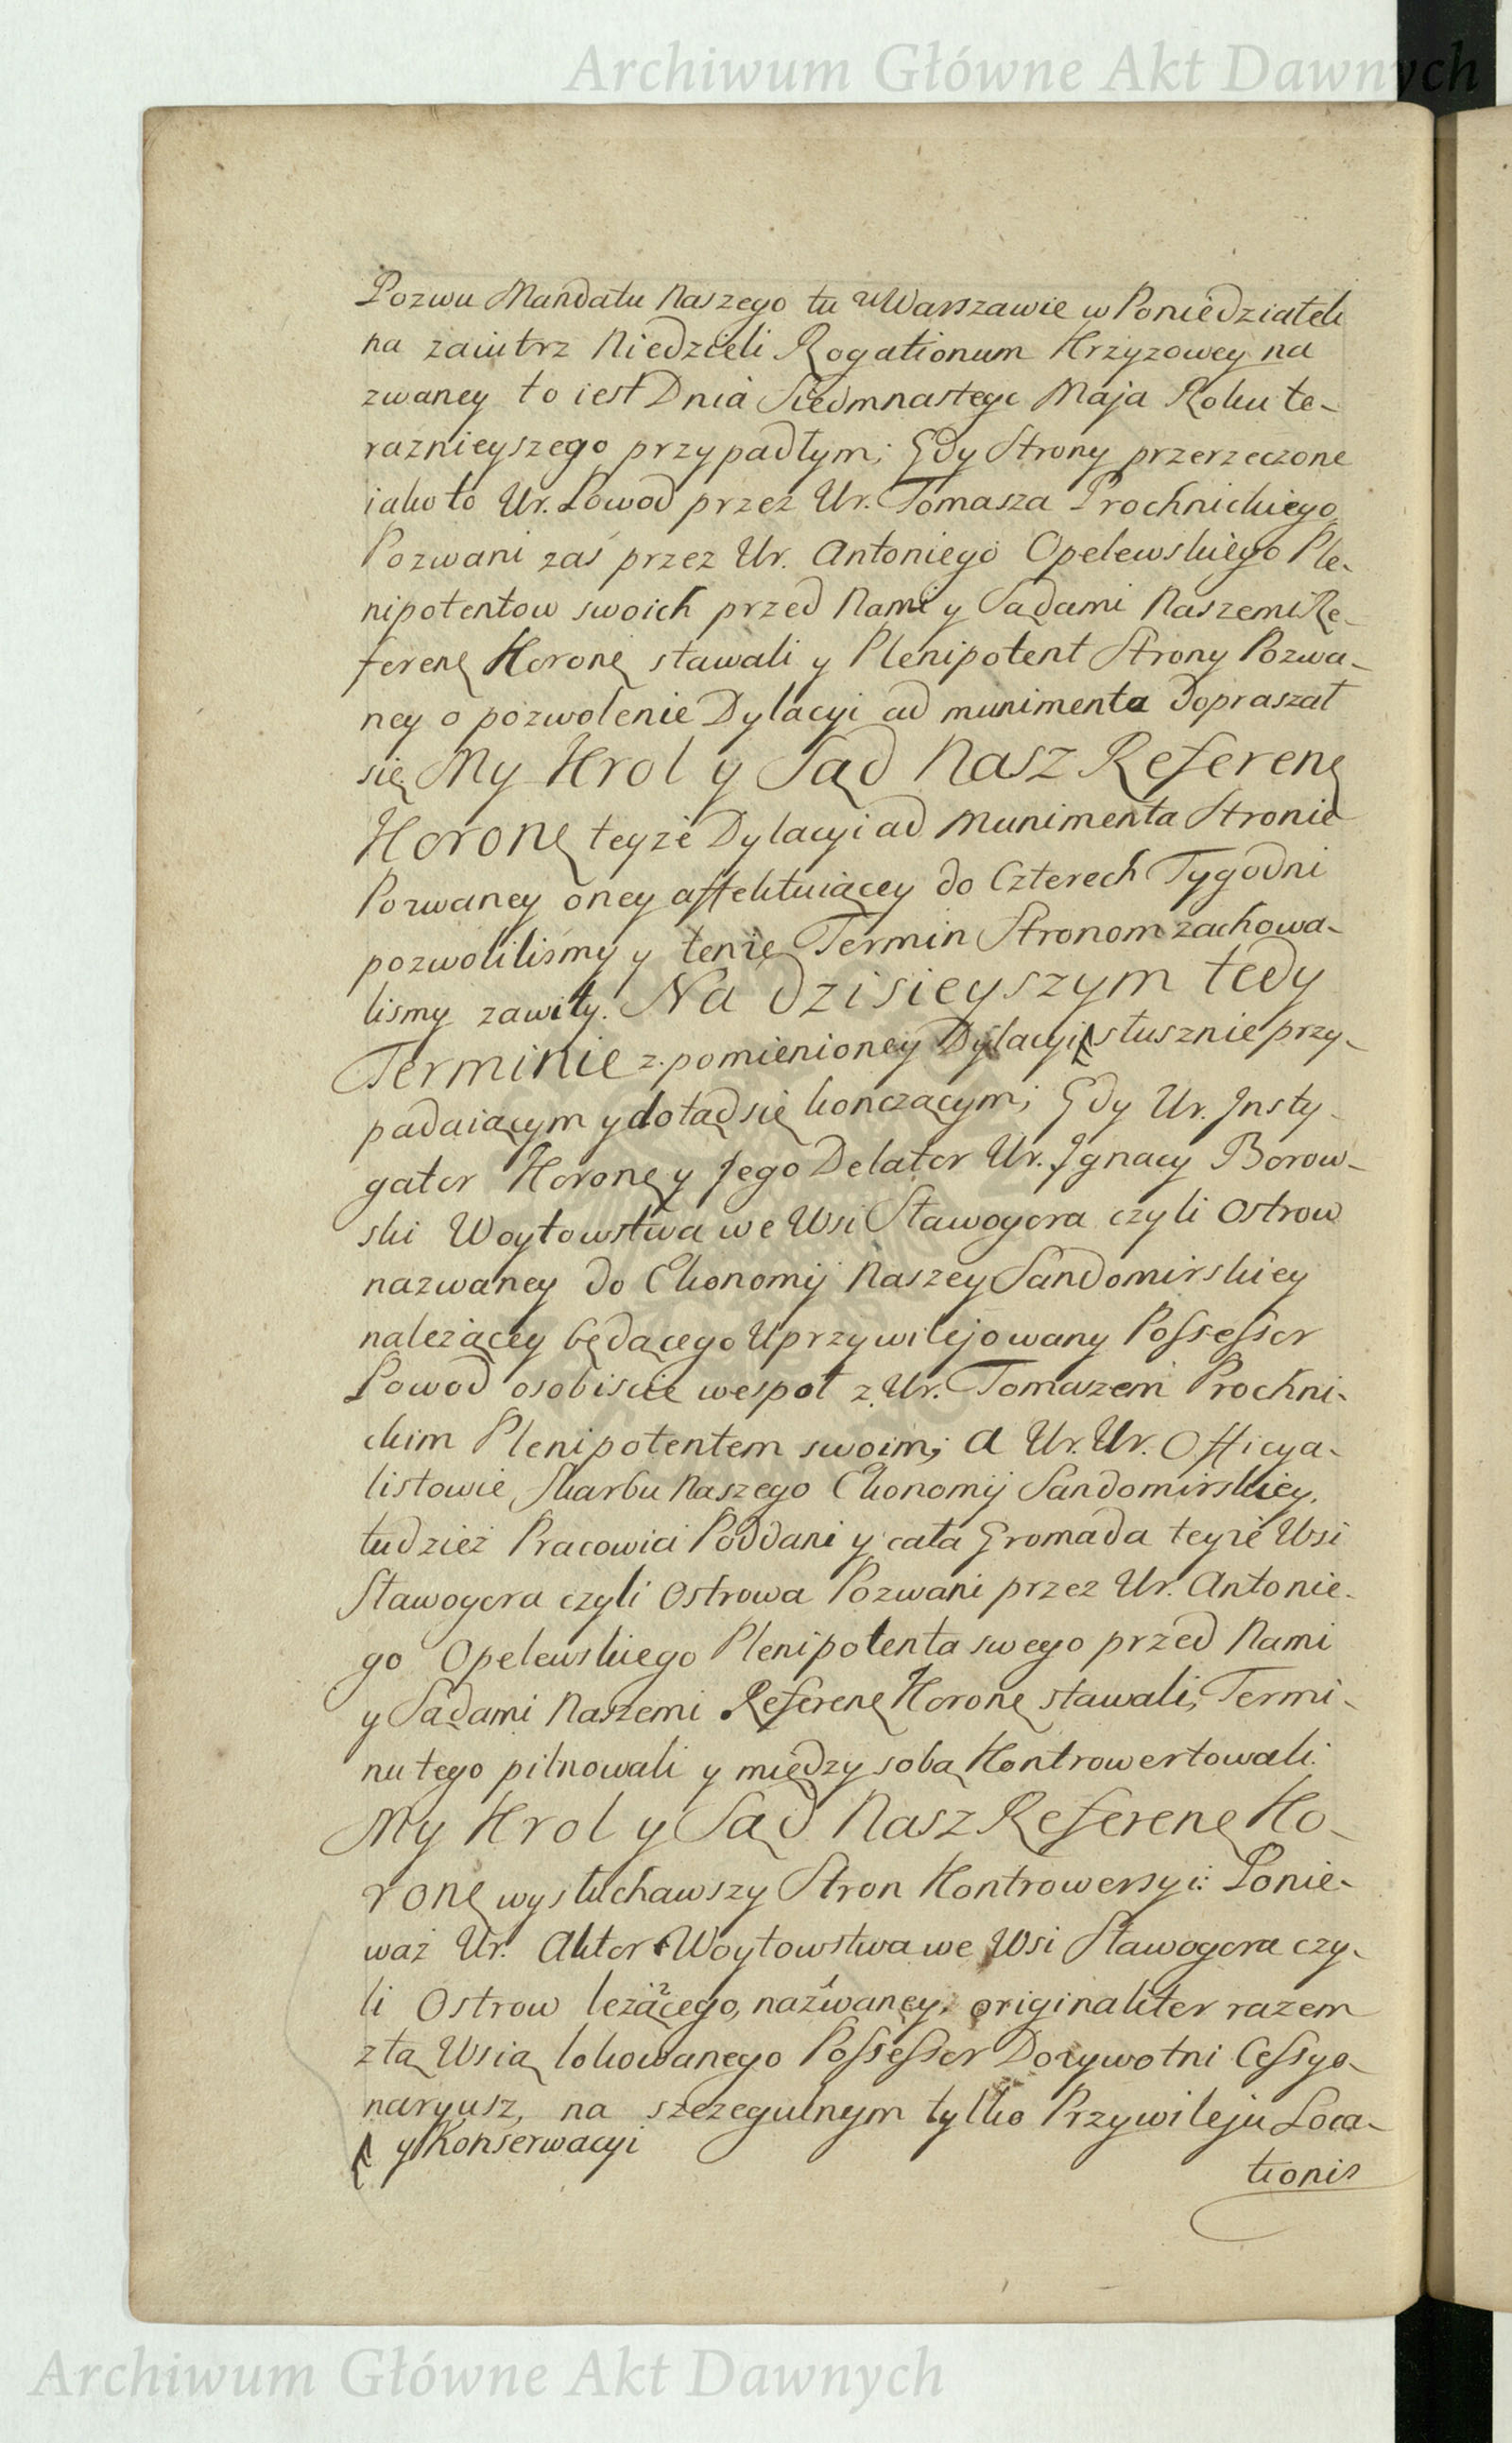 Archiwum Główne Akt Dawnych
Pozwu Mandatu Naszego tu w Warszawie w Poniedziałek
na zaiutrz Niedzieli Rogationum Krzyzowey na
zwaney to iest Dnia Siedmnastego Maja Roku te-
raznieyszego przypadłym; Gdy Strony przerzeczone
iako to Ur. Powod przez Ur. Tomasza Prochnickiego
Pozwani zaś przez Ur. Antoniego Opelewskiego Ple-
nipotentow swoich przed Nami y Sądami Naszemi Re-
feren Koron stawali y Plenipotent Strony Pozwa-
ney o pozwolenie Dylacyi ad munimenta dopraszał
się My Krol y Sąd Nasz Referen
Koron teyże Dylacyi ad Munimenta Stronie
Pozwaney oney affektuiącey do Czterech Tygodni
pozwoliliśmy y tenże Termin Stronom zachowa-
lismy zawity. Na dzisieyszym tedy
Terminie z pomienioney Dylacyi słusznie przy-
padaiącym y dotąd się konczącym; Gdy Ur. Insty-
gator Koron y Jego Delator Ur. Ignacy Borow-
ski Woytowstwa we Wsi Stawogora czyli Ostrow
nazwaney do Ekonomij Naszey Sandomirskiey
należącey będącego Uprzywilejowany Possessor
Powod osobiscie wespoł z Ur. Tomaszem Prochni-
ckim Plenipotentem swoim; a Ur. Ur. Officya-
listowie Skarbu Naszego Ekonomij Sandomirskiey,
tudzież Pracowici Poddani y cała Gromada teyże Wsi
Stawogora czyli Ostrowa Pozwani przez Ur. Antonie-
go Opelewskiego Plenipotenta swego przed Nami
y Sądami Naszemi Referen Koron stawali, Termi-
nu tego pilnowali y między sobą Kontrowertowali.
My Krol y Sąd Nasz Referen Ko-
ron wysłuchawszy Stron Kontrowersyi: Ponie-
waż Ur. Aktor Woytowstwa we Wsi Stawogora czy-
li Ostrow leżącego, nazwaney, originaliter razem
z tą Wsią lokowanego Possessor Dożywotni Cessyo-
naryusz, na szczegulnym tylko Przywileju Loca-
y Konserwacyi
tionis
Archiwum Główne Akt Dawnych